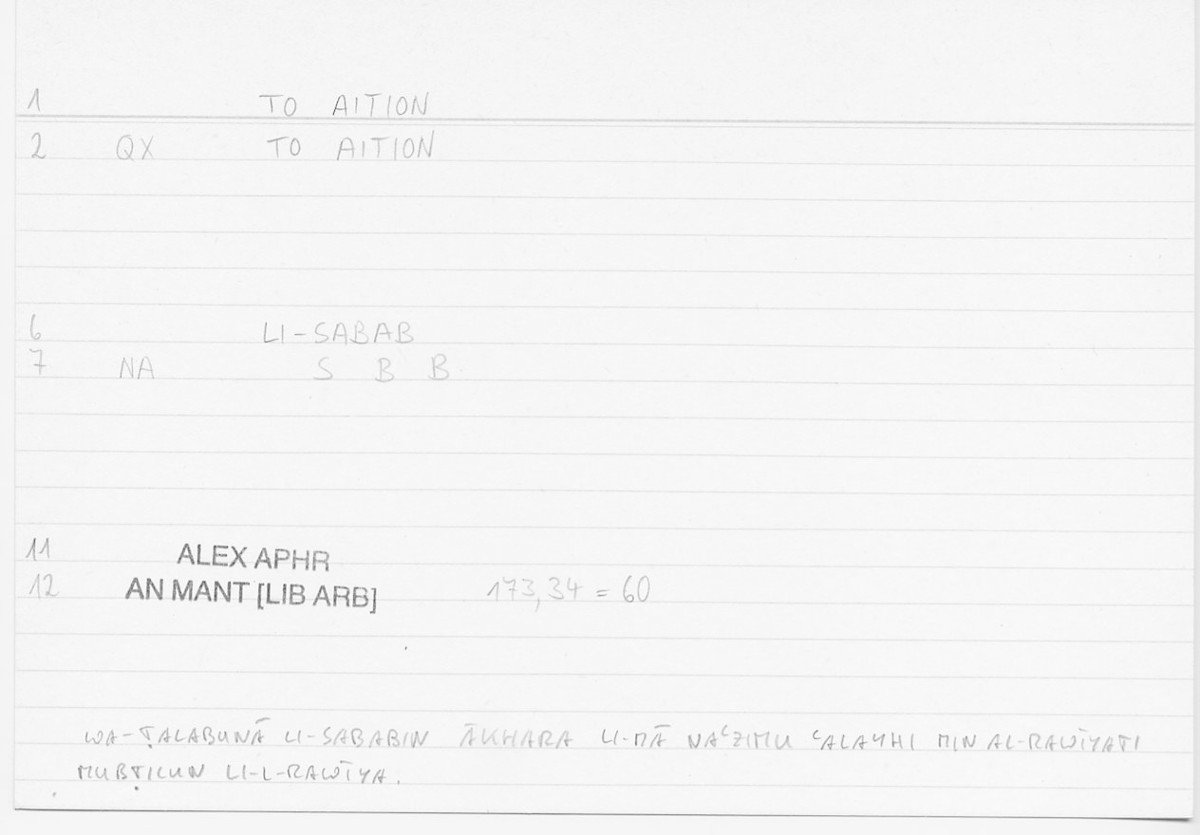 1 TO AITION
2 QX TO AITION
6 LI-SABAB
7 NA S B B
11 ALEX APHR
12 AN MANT [LIB ARB] 173,34 = 60
WA-ṬALABUNĀ LI-SABABIN ĀKHARA LI-MĀ NAʿZIMU ʿALAYHI MIN AL-RAWĪYATI
MUBṬILUN LI-L-RAWĪYA.